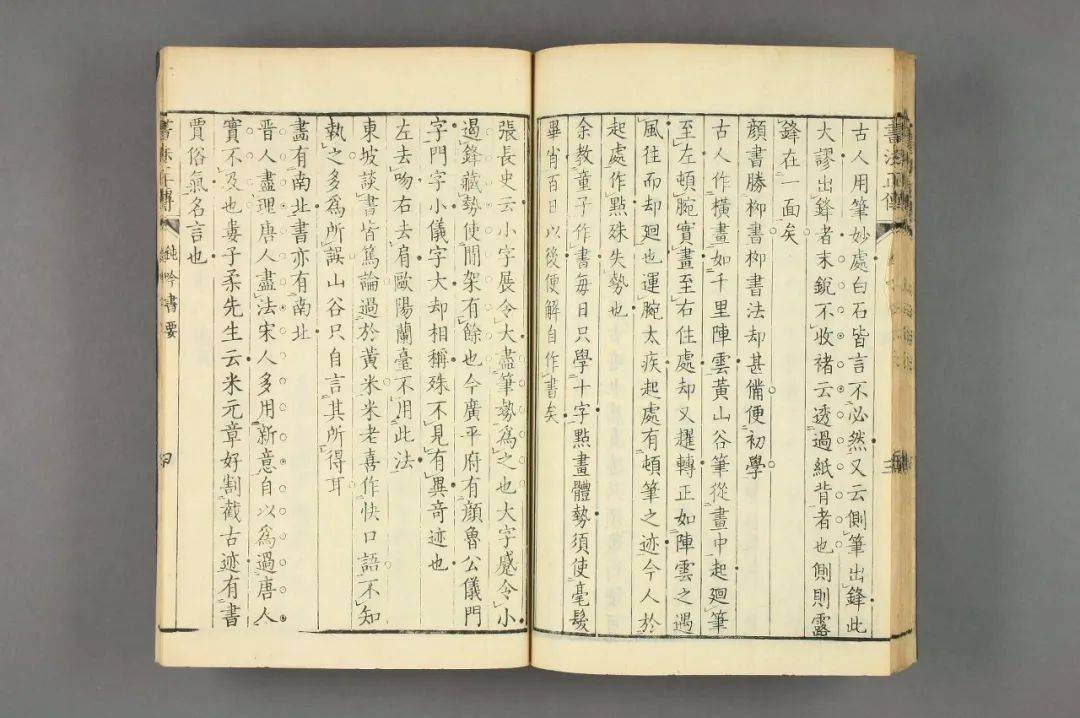 古人用筆妙處白石皆言不必然又云側筆出鋒此
大謬出鋒者末銳不收褚云透過紙背者也側則露
鋒在一面矣
顔書勝栁書栁書法却甚備便初學
古人作橫畫如千里陣雲黃山谷筆從畫中起廻筆
至左頓腕實畫至右住處却又趯轉正如陣雲之遇
風往而却廻也運腕太疾起處有頓筆之迹今人於
起處作點殊失勢也
余教童子作書每日只學十字點畫體勢須使毫髮
畢肖百日以後便解自作書矣
張長史云小字展令大盡筆勢為之也大字蹙令小
遏鋒藏勢使間架有餘也今廣平府有顔魯公儀門
字門字小儀字大却相稱殊不見有異奇迹也
左去吻右去肩歐陽蘭臺不用此法
東坡談書皆篤論過於黃米米老喜作快口語不知
執之多為所誤山谷只自言其所得耳
畵有南北書亦有南北
晉人盡理唐人盡法宋人多用新意自以為過唐人
實不及也婁子柔先生云米元章好割截古迹有書
賈俗氣名言也
鈍吟書要
書法正傳